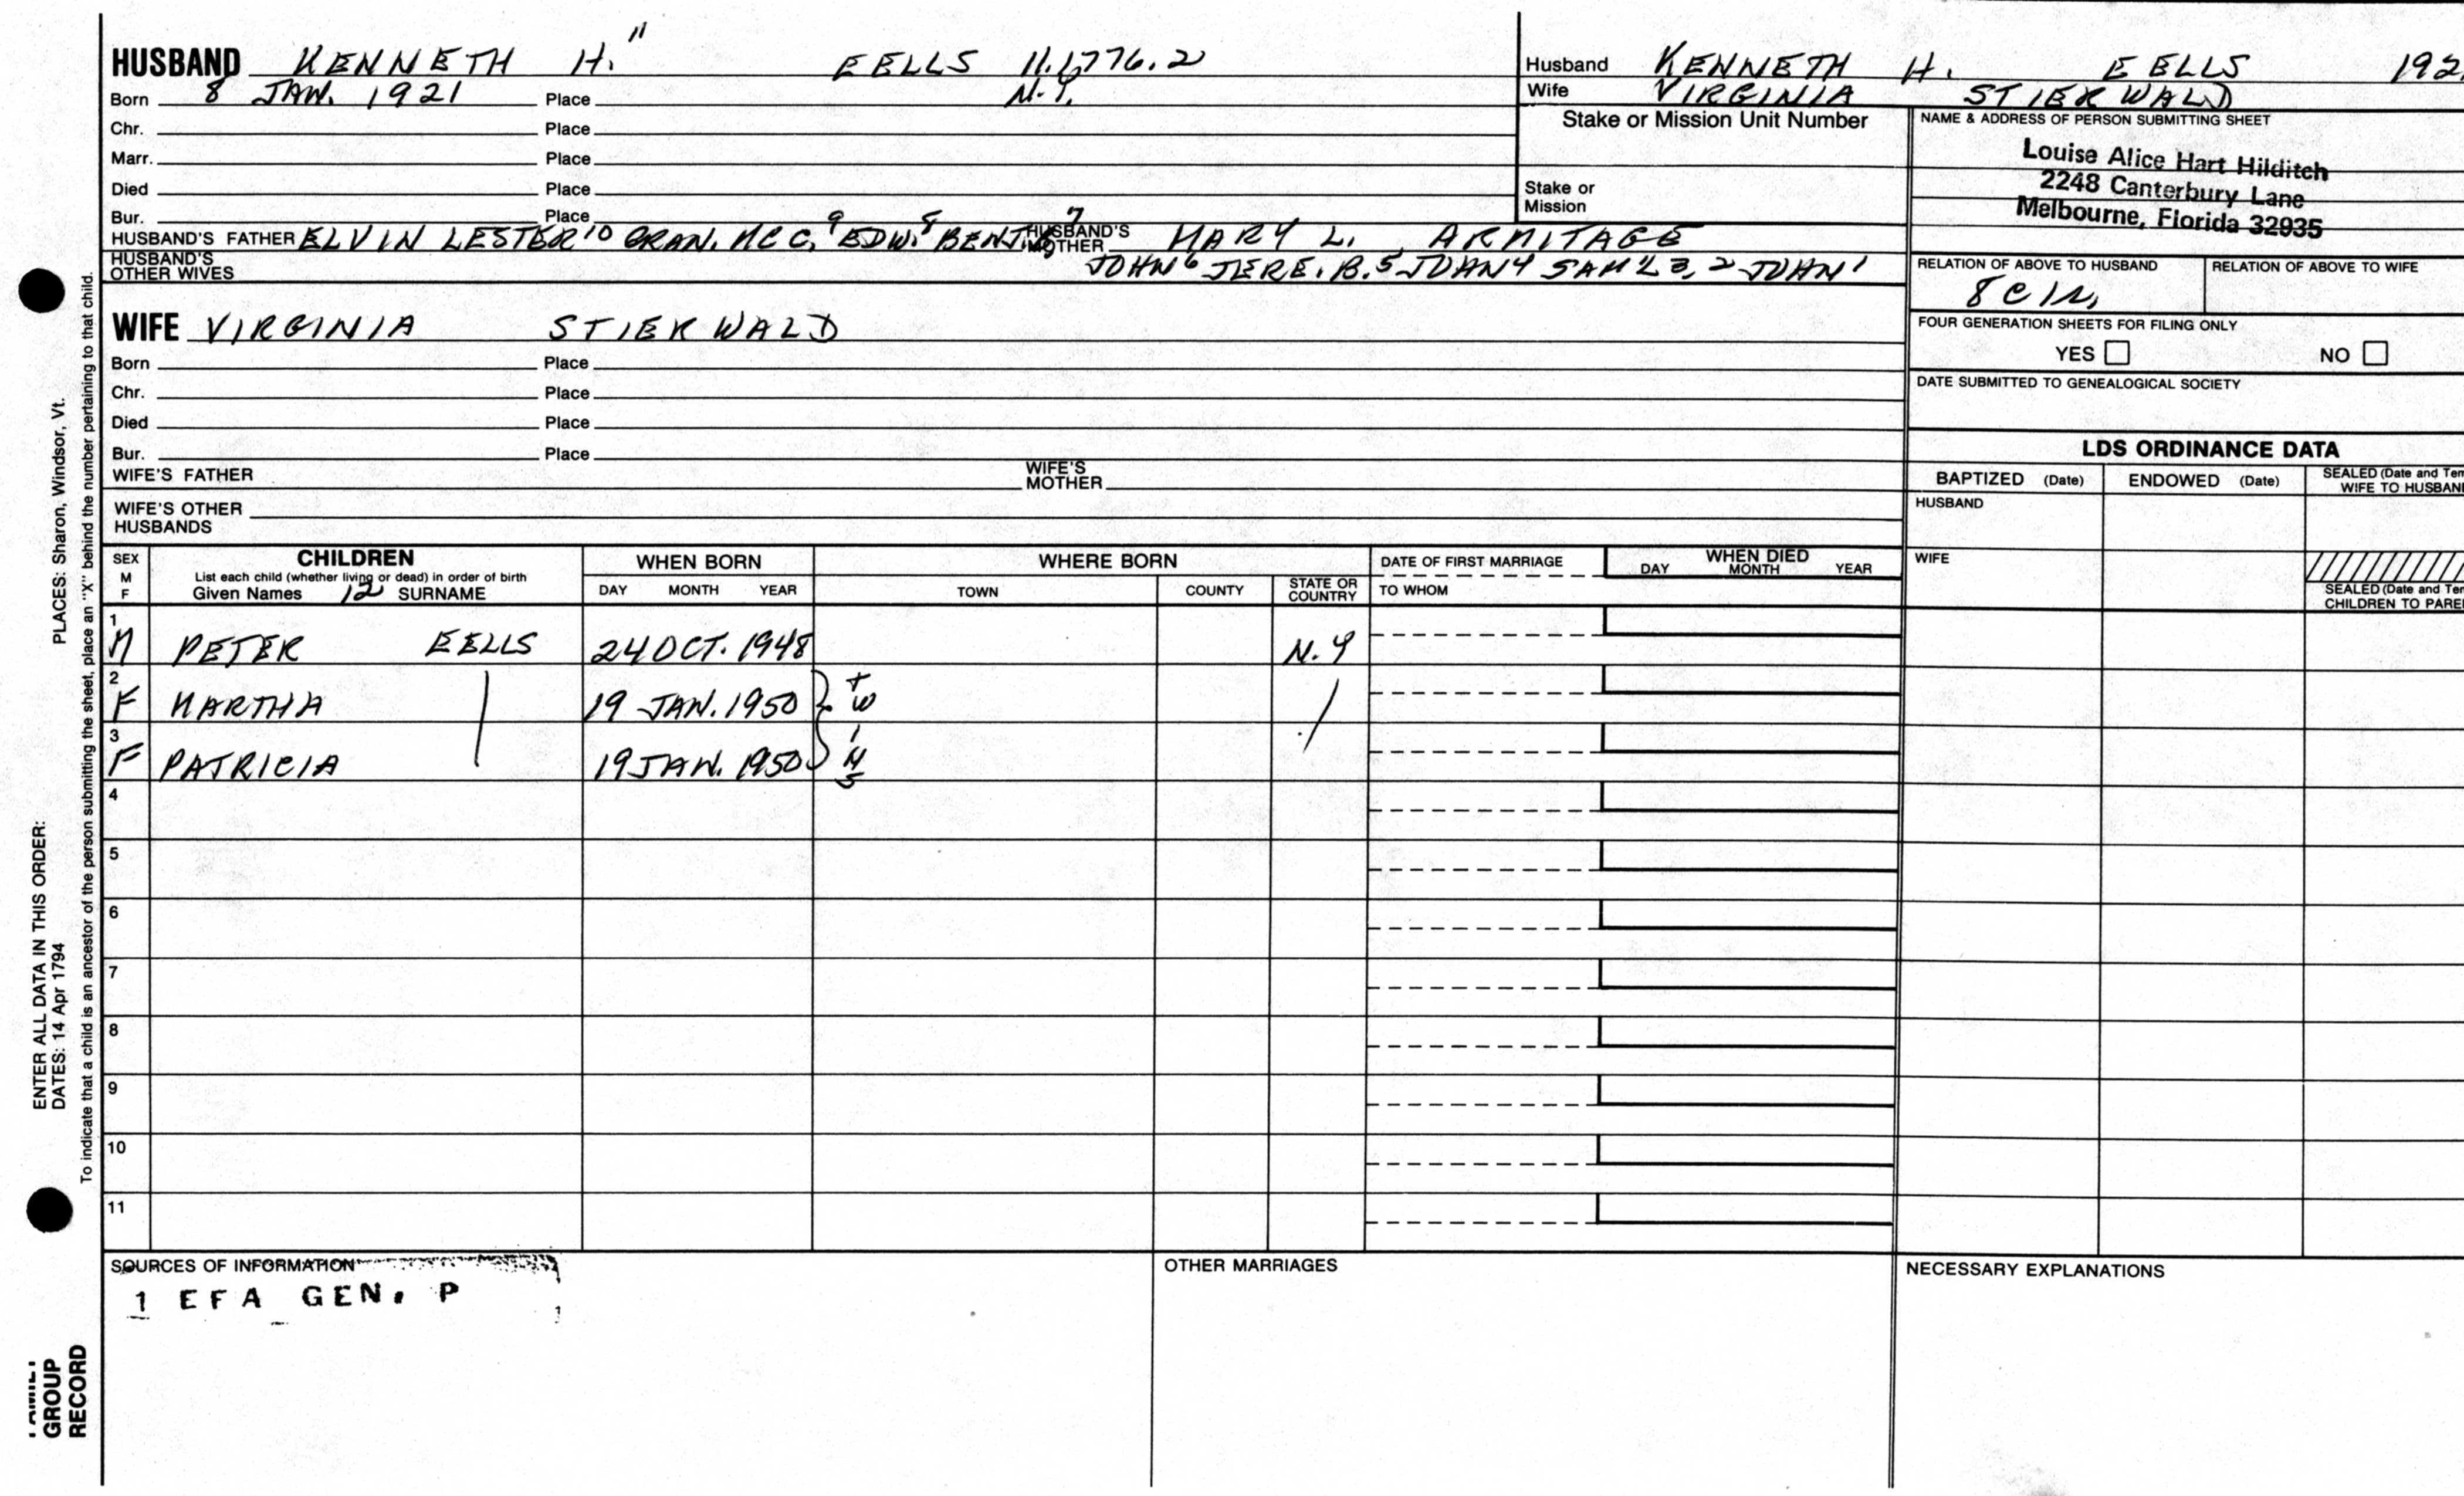 HUSBAND KENNETH H. 11 EELLS 11.1776.2
Born 8 JAN. 1921 Place N.Y.
Chr. Place
Marr. Place
Died Place
Bur. Place
HUSBAND'S FATHER ELVIN LESTER 10 GRAN. MC C. 9 EDW. 8 BENJ. 7 HUSBAND'S MOTHER MARY L. ARMITAGE
HUSBAND'S OTHER WIVES JOHN 6 JERE. B. 5 JOHN 4 SAM'L 3, 2 JOHN 1
Husband KENNETH H. EELLS 192
Wife VIRGINIA STIERWALD
Stake or Mission Unit Number
Stake or
Mission
NAME & ADDRESS OF PERSON SUBMITTING SHEET
Louise Alice Hart Hilditch
2248 Canterbury Lane
Melbourne, Florida 32935
RELATION OF ABOVE TO HUSBAND RELATION OF ABOVE TO WIFE
8 C 1 R,
FOUR GENERATION SHEETS FOR FILING ONLY
YES NO
DATE SUBMITTED TO GENEALOGICAL SOCIETY
WIFE VIRGINIA STIERWALD
Born Place
Chr. Place
Died Place
Bur. Place
WIFE'S FATHER WIFE'S MOTHER
WIFE'S OTHER
HUSBANDS
LDS ORDINANCE DATA
BAPTIZED (Date) ENDOWED (Date) SEALED (Date and Tem
WIFE TO HUSBAN
HUSBAND
WIFE
SEALED (Date and Tem
CHILDREN TO PARE
SEX
M
F
CHILDREN
List each child (whether living or dead) in order of birth
Given Names 12 SURNAME
WHEN BORN
DAY MONTH YEAR
WHERE BORN
TOWN COUNTY STATE OR COUNTRY
DATE OF FIRST MARRIAGE
TO WHOM
WHEN DIED
DAY MONTH YEAR
1 M PETER EELLS 24 OCT. 1948 N.Y
2 F MARTHA 19 JAN. 1950
3 F PATRICIA 19 JAN. 1950
TWINS
4
5
6
7
8
9
10
11
SOURCES OF INFORMATION
1 EFA GEN. P
OTHER MARRIAGES
NECESSARY EXPLANATIONS
ENTER ALL DATA IN THIS ORDER:
DATES: 14 Apr 1794 PLACES: Sharon, Windsor, Vt.
To indicate that a child is an ancestor of the person submitting the sheet, place an "X" behind the number pertaining to that child.
FAMILY
GROUP
RECORD